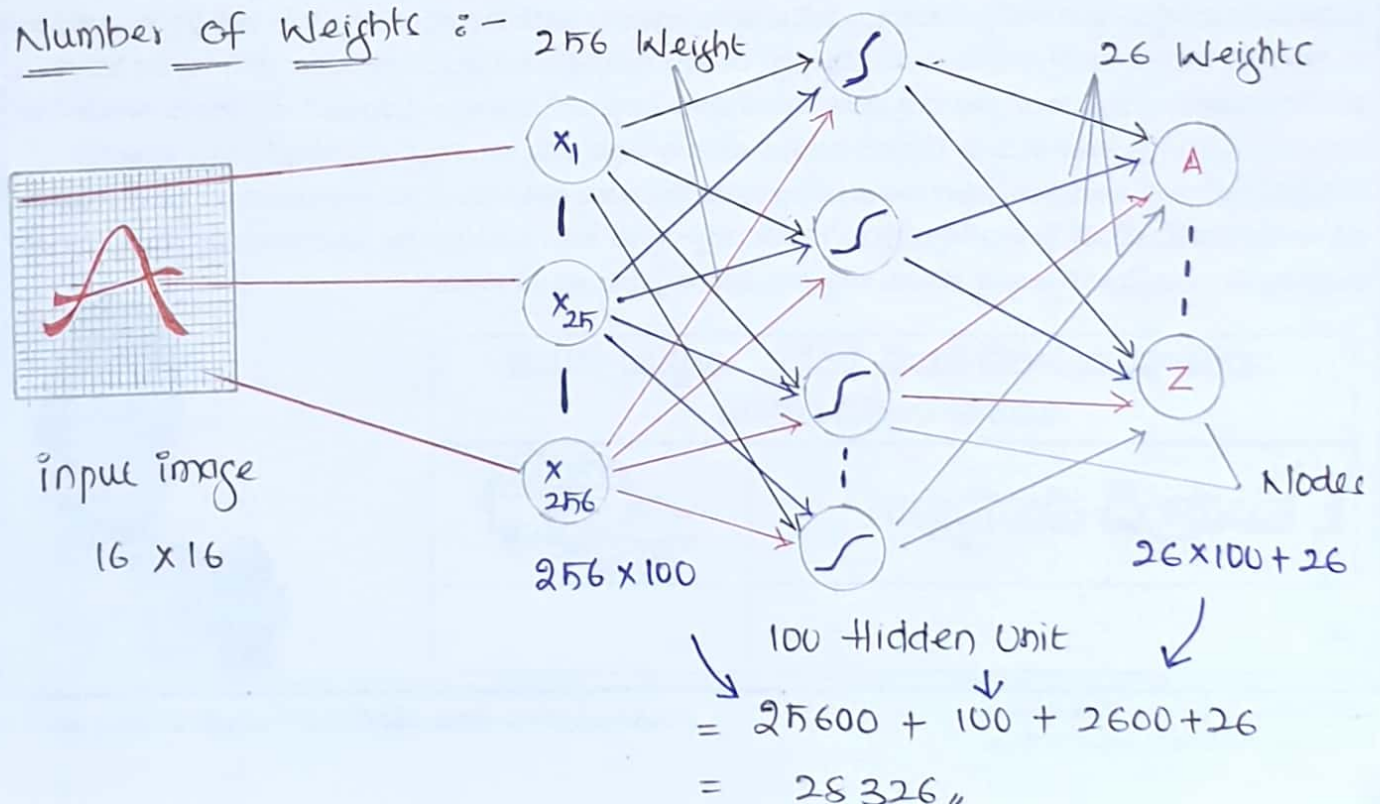 Number of Weights :-
256 Weight
26 Weights
x1
x25
x256
A
Z
Nodes
input image
16 x 16
256 x 100
26 x 100 + 26
100 Hidden Unit
= 25600 + 100 + 2600 + 26
= 28326,,